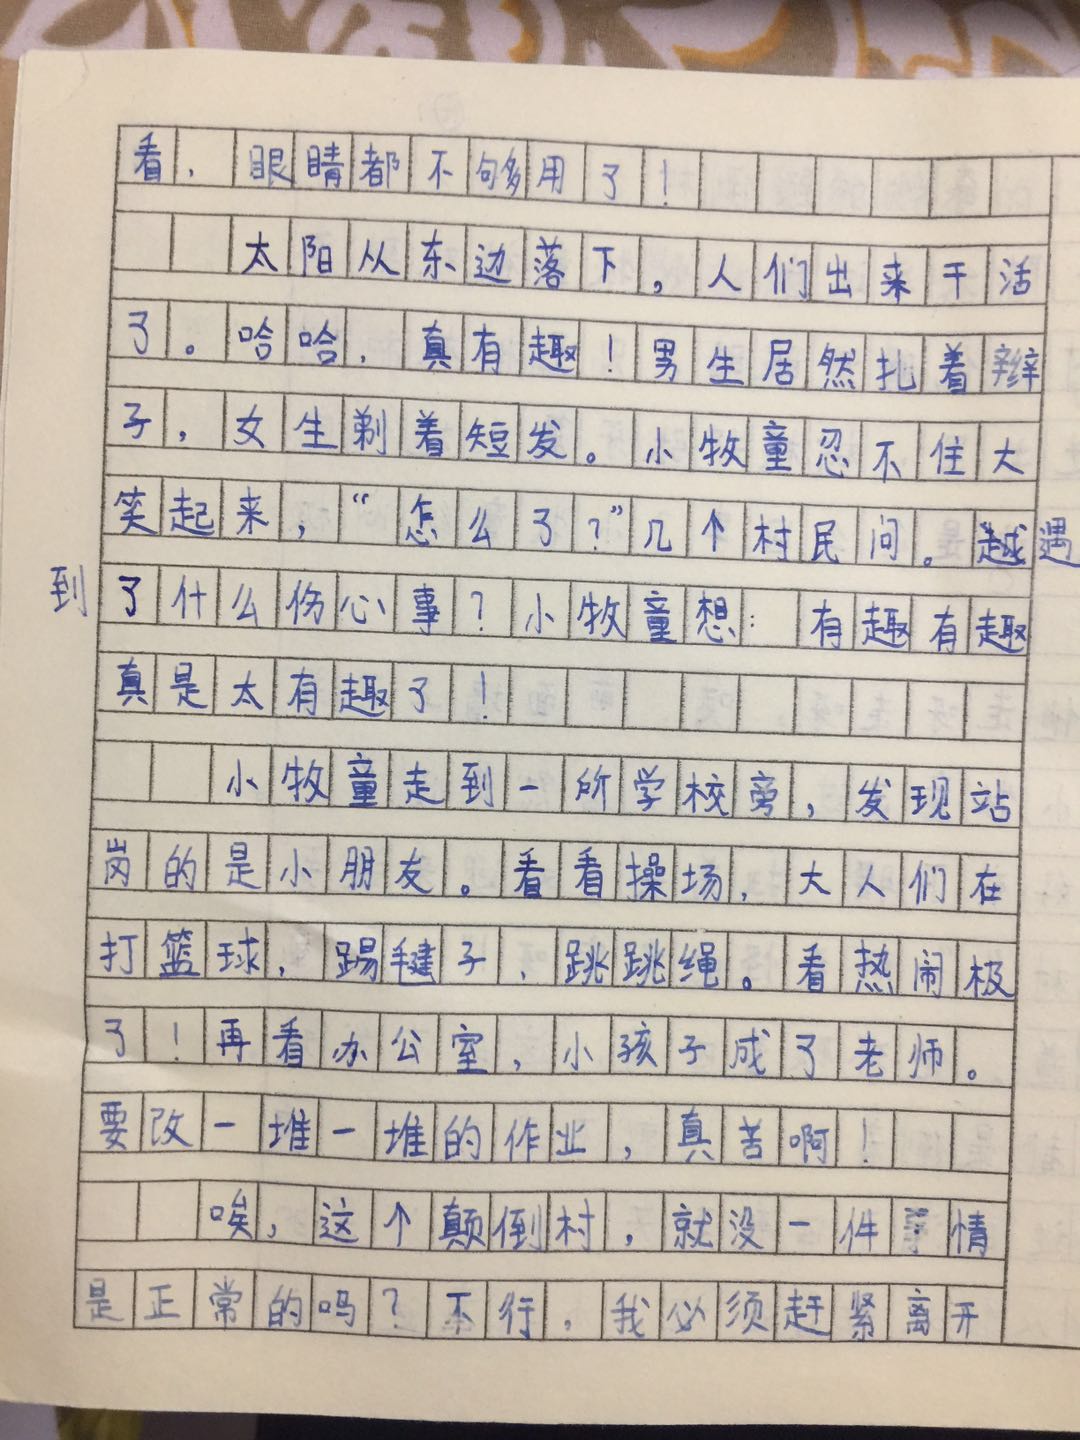 看，眼睛都不够用了！
太阳从东边落下，人们出来干活
了。哈哈，真有趣！男生居然扎着辫
子，女生剃着短发。小牧童忍不住大
笑起来，“怎么了？”几个村民问。越遇
到了什么伤心事？小牧童想：有趣有趣
真是太有趣了！
小牧童走到一所学校旁，发现站
岗的是小朋友。看看操场，大人们在
打篮球，踢毽子，跳跳绳。看热闹极
了！再看办公室，小孩子成了老师。
要改一堆一堆的作业，真苦啊！
唉，这个颠倒村，就没一件事情
是正常的吗？不行，我必须赶紧离开